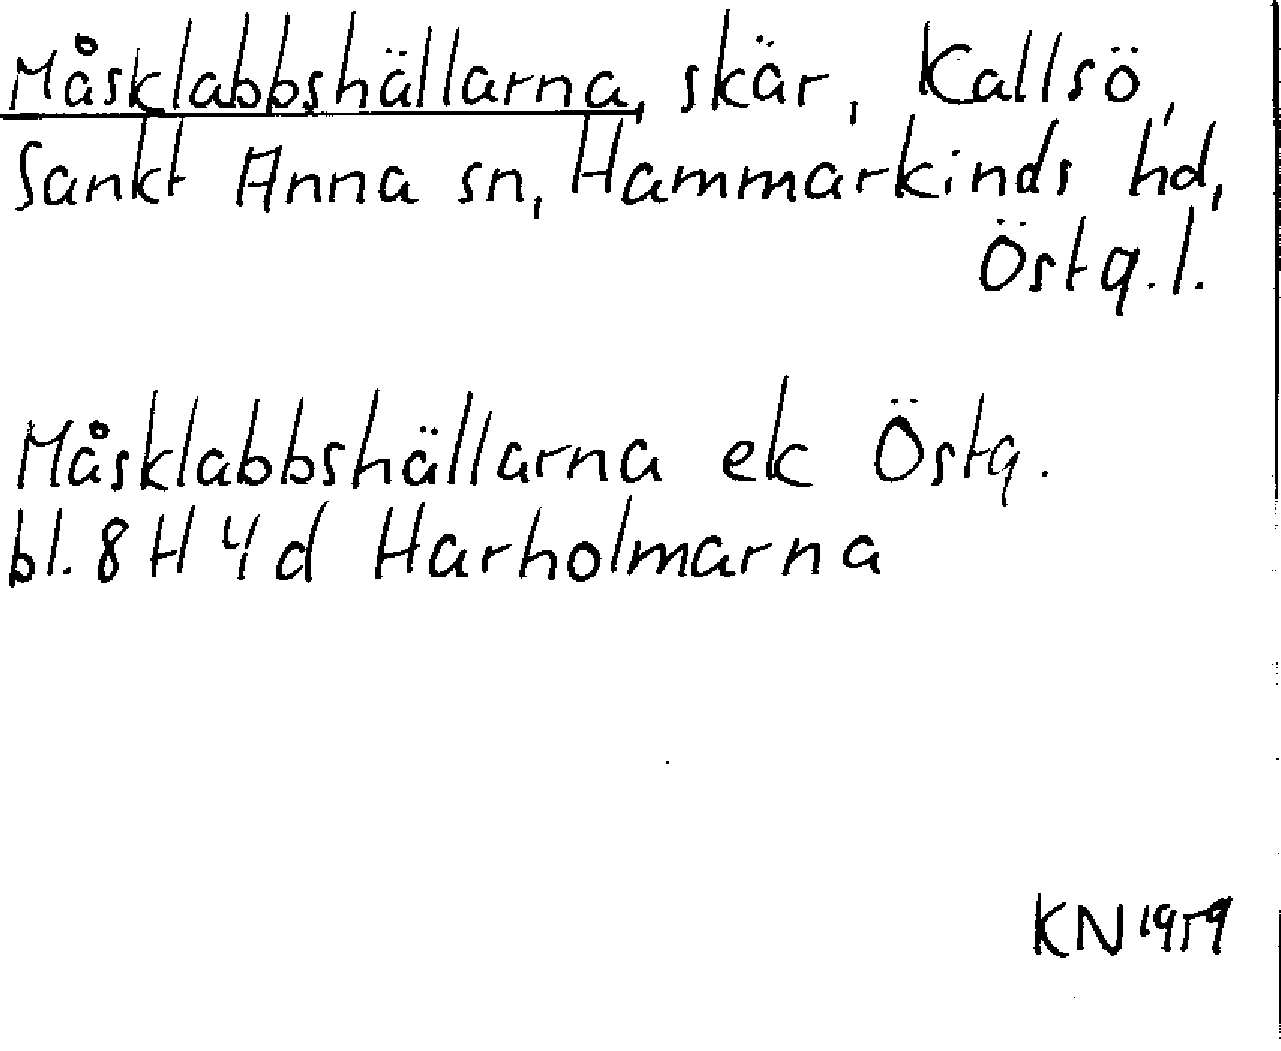 Måsklabbshällarna, skär, Kallsö,
Sankt Anna sn, Hammarkinds hd,
Östg.l.
Måsklabbshällarna ek Östg.
bl. 8 H 4 d Harholmarna
KN 1959